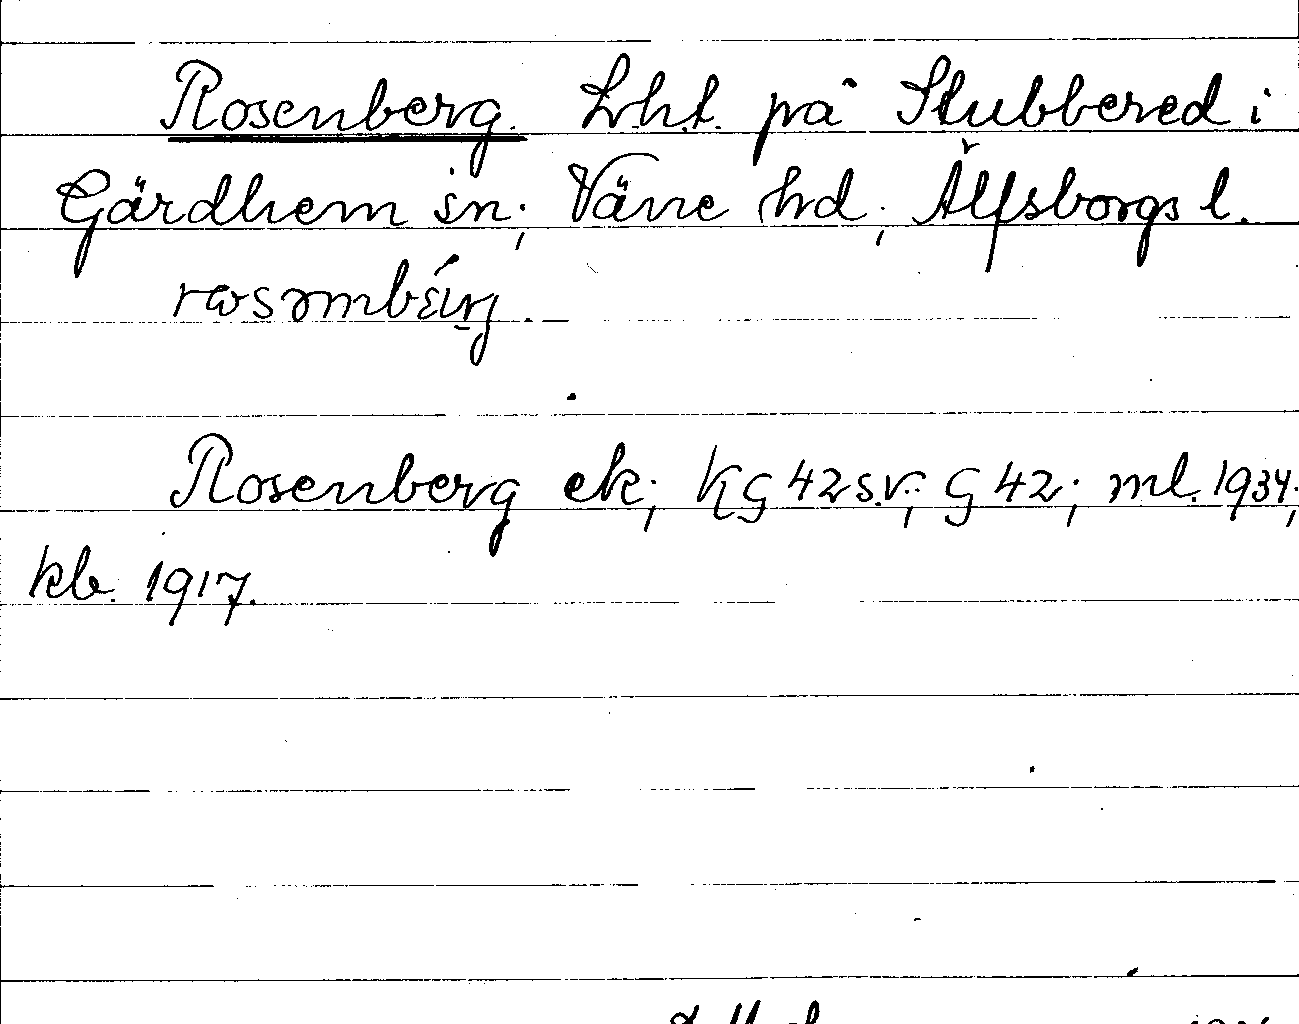 Rosenberg. Lht. på Stubbered i
Gärdhem sn; Väne hd; Älfsborgs l.
Rosenberg ek; KG 42 s.v.; G 42; ml. 1934;
kb. 1917.